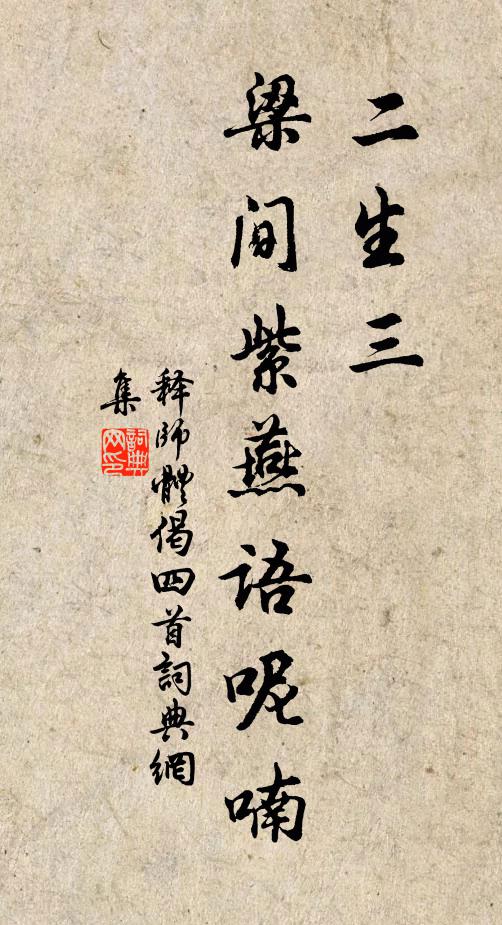 二生三
梁间紫燕语呢喃
释师體偈四首詞典網
集
詞典
网印